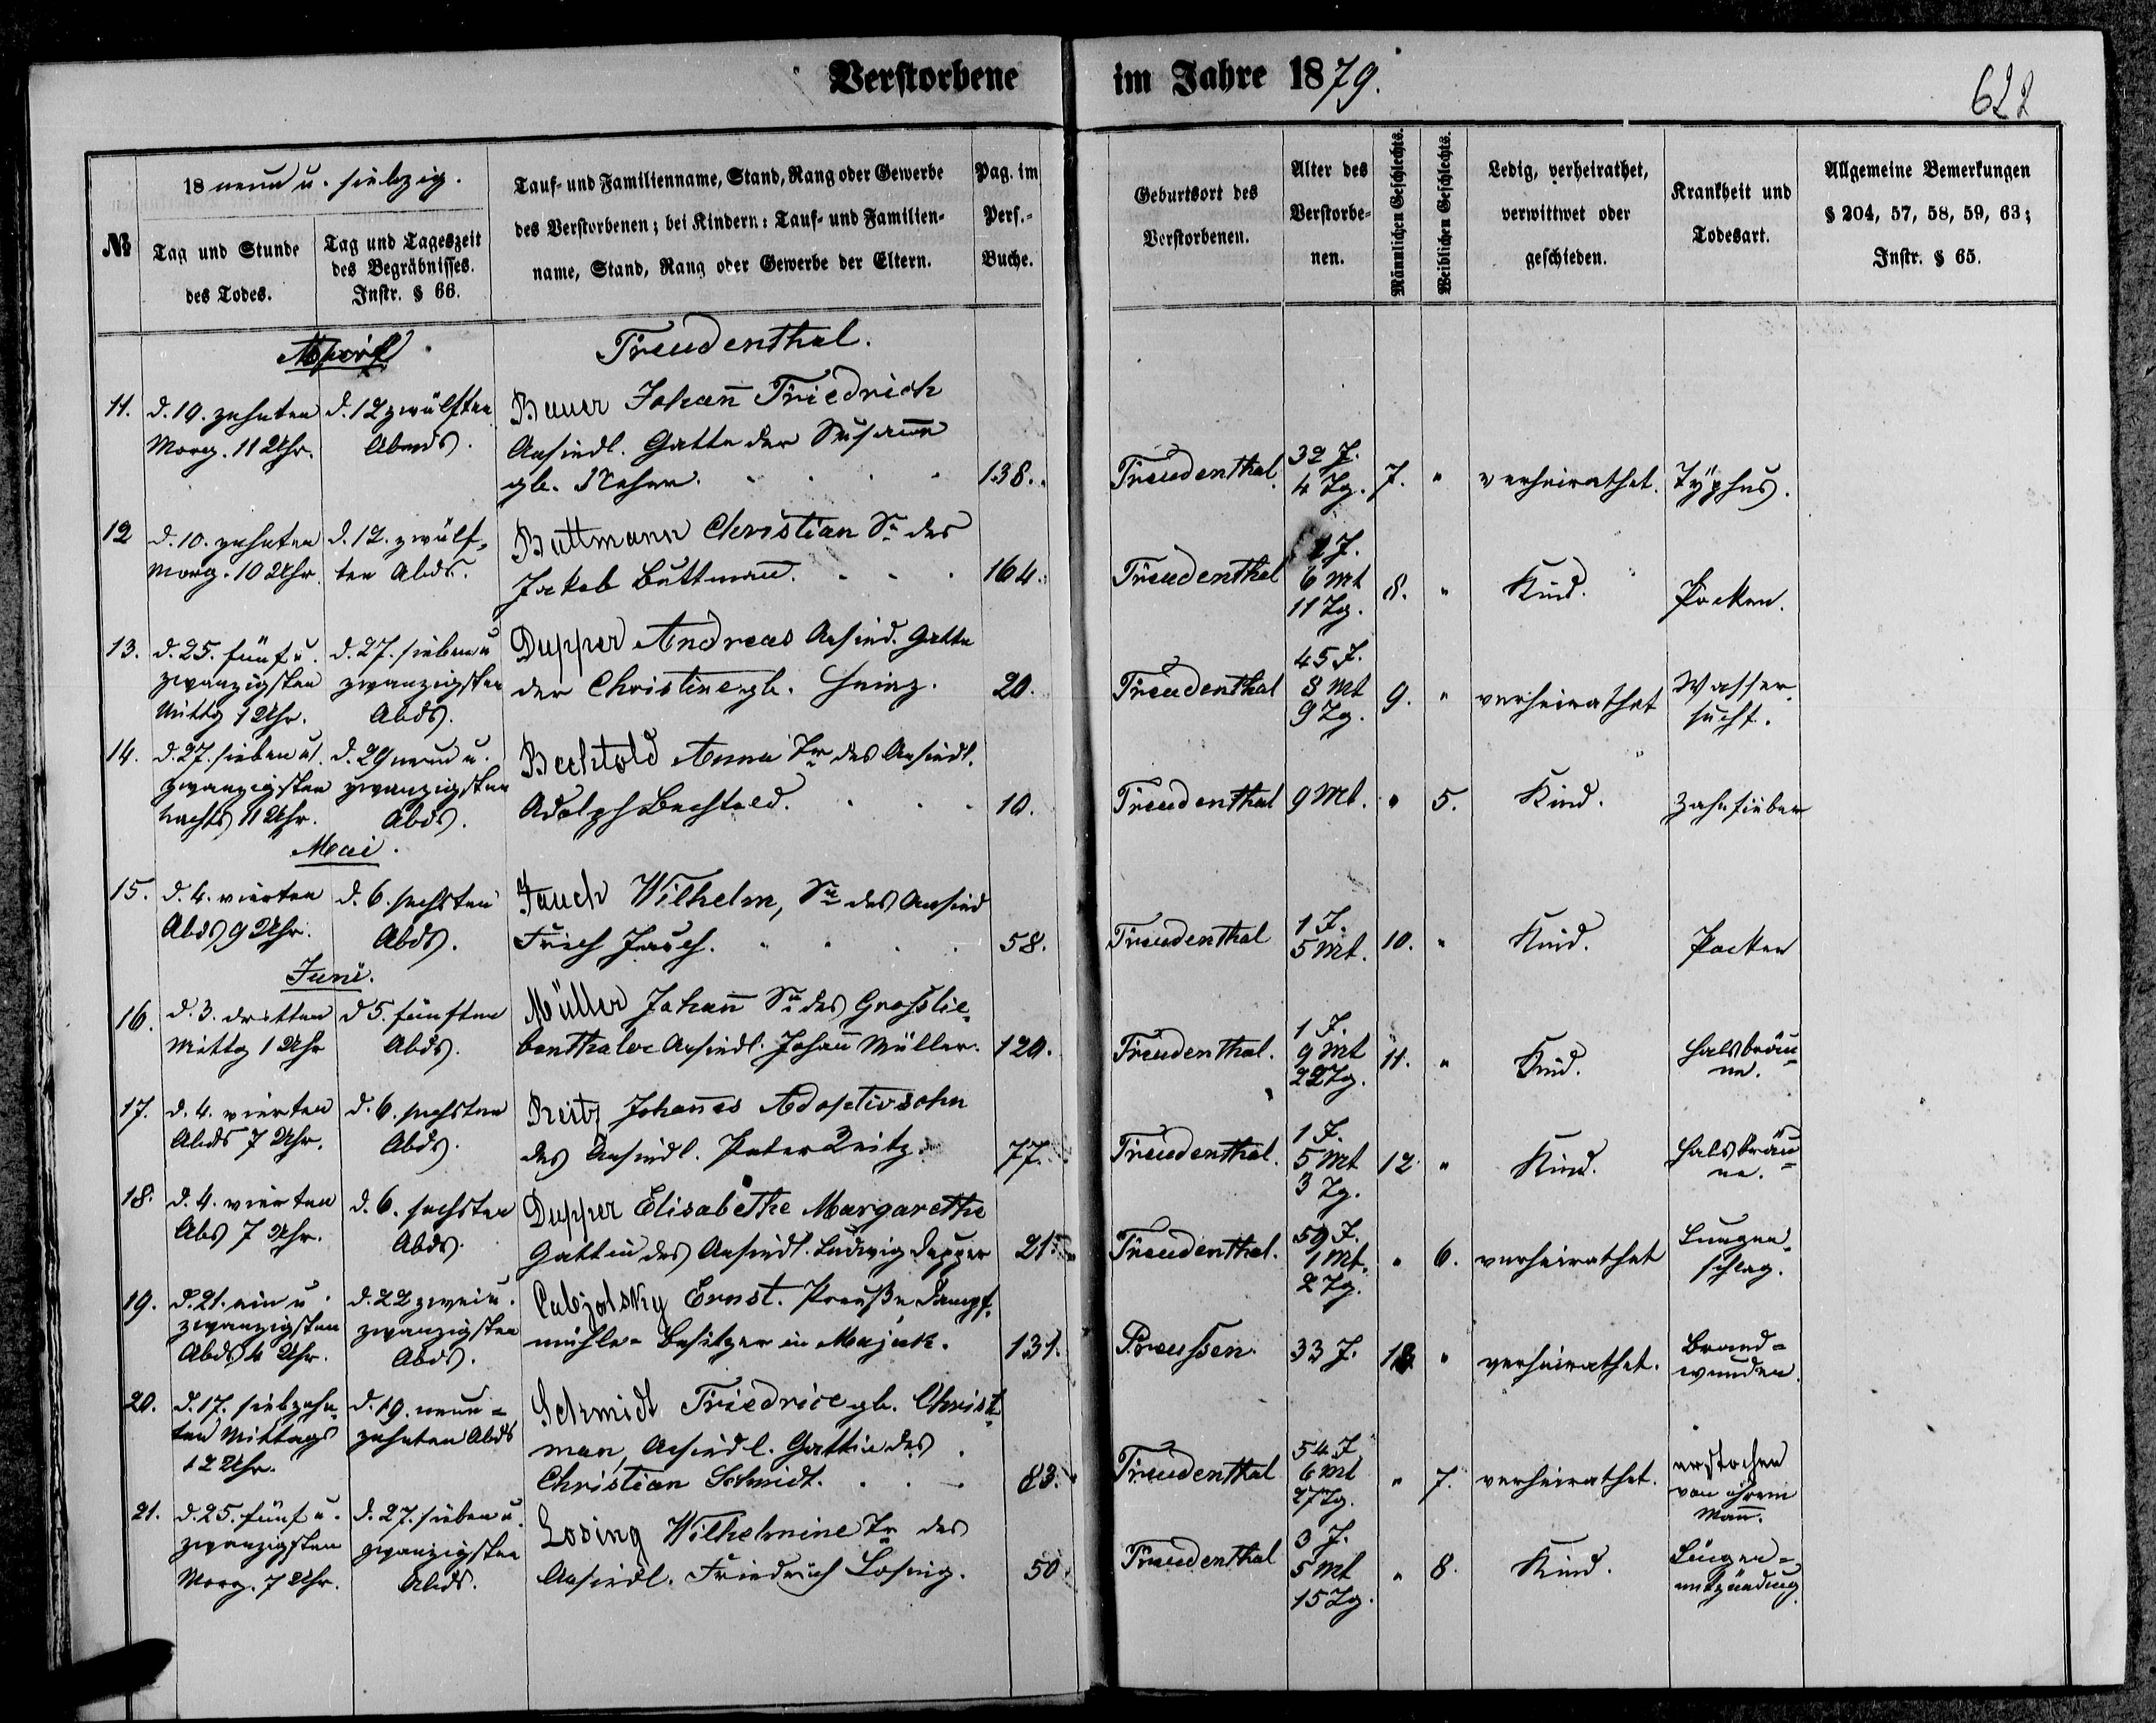 Verstorbene im Jahre 1879.
622
№
18 neun u. siebzig.
Tag und Stunde
des Todes.
Tag und Tageszeit
des Begräbnisses.
Instr. § 66.
Tauf- und Familienname, Stand, Rang oder Gewerbe
des Verstorbenen; bei Kindern: Tauf- und Familien-
name, Stand, Rang oder Gewerbe der Eltern.
Pag. im
Pers.-
Buche.
Geburtsort des
Verstorbenen.
Alter des
Verstorbe-
nen.
Männlichen Geschlechts.
Weiblichen Geschlechts.
Ledig, verheirathet,
verwittwet oder
geschieden.
Krankheit und
Todesart.
Allgemeine Bemerkungen
§ 204, 57, 58, 59, 63;
Instr. § 65.
Freudenthal.
11.
d. 10. zehnten
Morg. 11 Uhr.
d. 12 zwölften
Abends.
Bauer Johañ Friedrich
Ansiedl. Gatte der Susanna
gb.
138.
Freudenthal
32 J.
4 Tg.
7.
"
verheirathet.
Typhus.
12
d. 10. zehnten
Morg. 10 Uhr.
d. 12. zwölf-
ten Abds.
Buttmann Christian Sn. des
Jakob Buttmañ.
164.
Freudenthal
J.
6 Mt
11 Tg.
8.
"
Kind.
Pocken.
13.
d. 25. fünf u.
zwanzigsten
Mittg 1 Uhr.
d. 27. sieben u
zwanzigsten
Abds.
Dupper Andreas Ansied. Gatte
der Christine gb. Heinz.
20.
Freudenthal
45 J.
8 Mt
9 Tg.
9.
"
verheirathet
Wasser-
sucht.
14.
d. 27. sieben u.
zwanzigsten
nachts 11 Uhr.
d. 29 neun u.
zwanzigsten
Abds.
Bechtold Anna Tr des Ansiedl.
Adolph Bechtold.
10.
Freudenthal
9 Mt.
"
5.
Kind.
Zahnfieber
Mai.
15.
d. 4. vierten
Abds 9 Uhr.
d. 6. sechsten
Abds.
Jauch Wilhelm, Sn des Ansied
Frieh Jauch.
58.
Freudenthal
1 J.
5 Mt.
10.
"
Kind.
Pocken
Juni.
16.
d. 3. dritten
Mittg 1 Uhr
d 5. fünften
Abds.
Müller Johañ Sn des Grosslie-
benthaler Ansiedl. Johañ Müller.
120.
Freudenthal.
1 J.
9 Mt
22 Tg.
11.
"
Kind.
Halsbräu-
ne.
17.
d. 4. vierten
Abds 7 Uhr.
d. 6. sechsten
Abds.
Reitz Johañes Adoptivsohn
des Ansiedl. Peter Reitz.
77.
Freudenthal.
1 J.
5 Mt
3 Tg.
12
"
Kind.
Halsbräu-
ne.
18.
d. 4. vierten
Abs 7 Uhr.
d. 6. sechsten
Abds.
Dupper Elisabethe Margarethe
Gattin des Ansiedl. Ludwig Dupper
21.
Freudenthal.
59 J.
1 Mt.
2 Tg.
"
6.
verheirathet
Lungen-
schlag.
19.
d. 21. ein u.
zwanzigsten
Abds 4 Uhr.
d. 22 zwei u.
zwanzigsten
Abds.
Ernst. Preuße Dampf-
mühle-Besitzer in Majak.
131.
Preussen.
33 J.
13
"
verheirathet.
Brand-
wunden.
20.
d. 17. siebzehn-
ten Mittags
12 Uhr.
d. 19. neun-
zehnten Abds
Schmidt Friedrice gb. Christ-
man, Ansiedl. Gattin des
Christian Schmidt.
83.
Freudenthal
54 J
6 Mt
27 Tg.
"
7.
verheirathet.
erstochen
von ihrem
Mañ.
21.
d. 25. fünf u.
zwanzigsten
Morg. 7 Uhr.
d. 27. sieben u.
zwanzigsten
Abds.
Losing Wilhelmine Tr des
Ansiedl. Friedrich Losing.
50.
Freudenthal
3 J.
5 Mt
15 Tg.
"
8.
Kind.
Lungen-
entzündung.